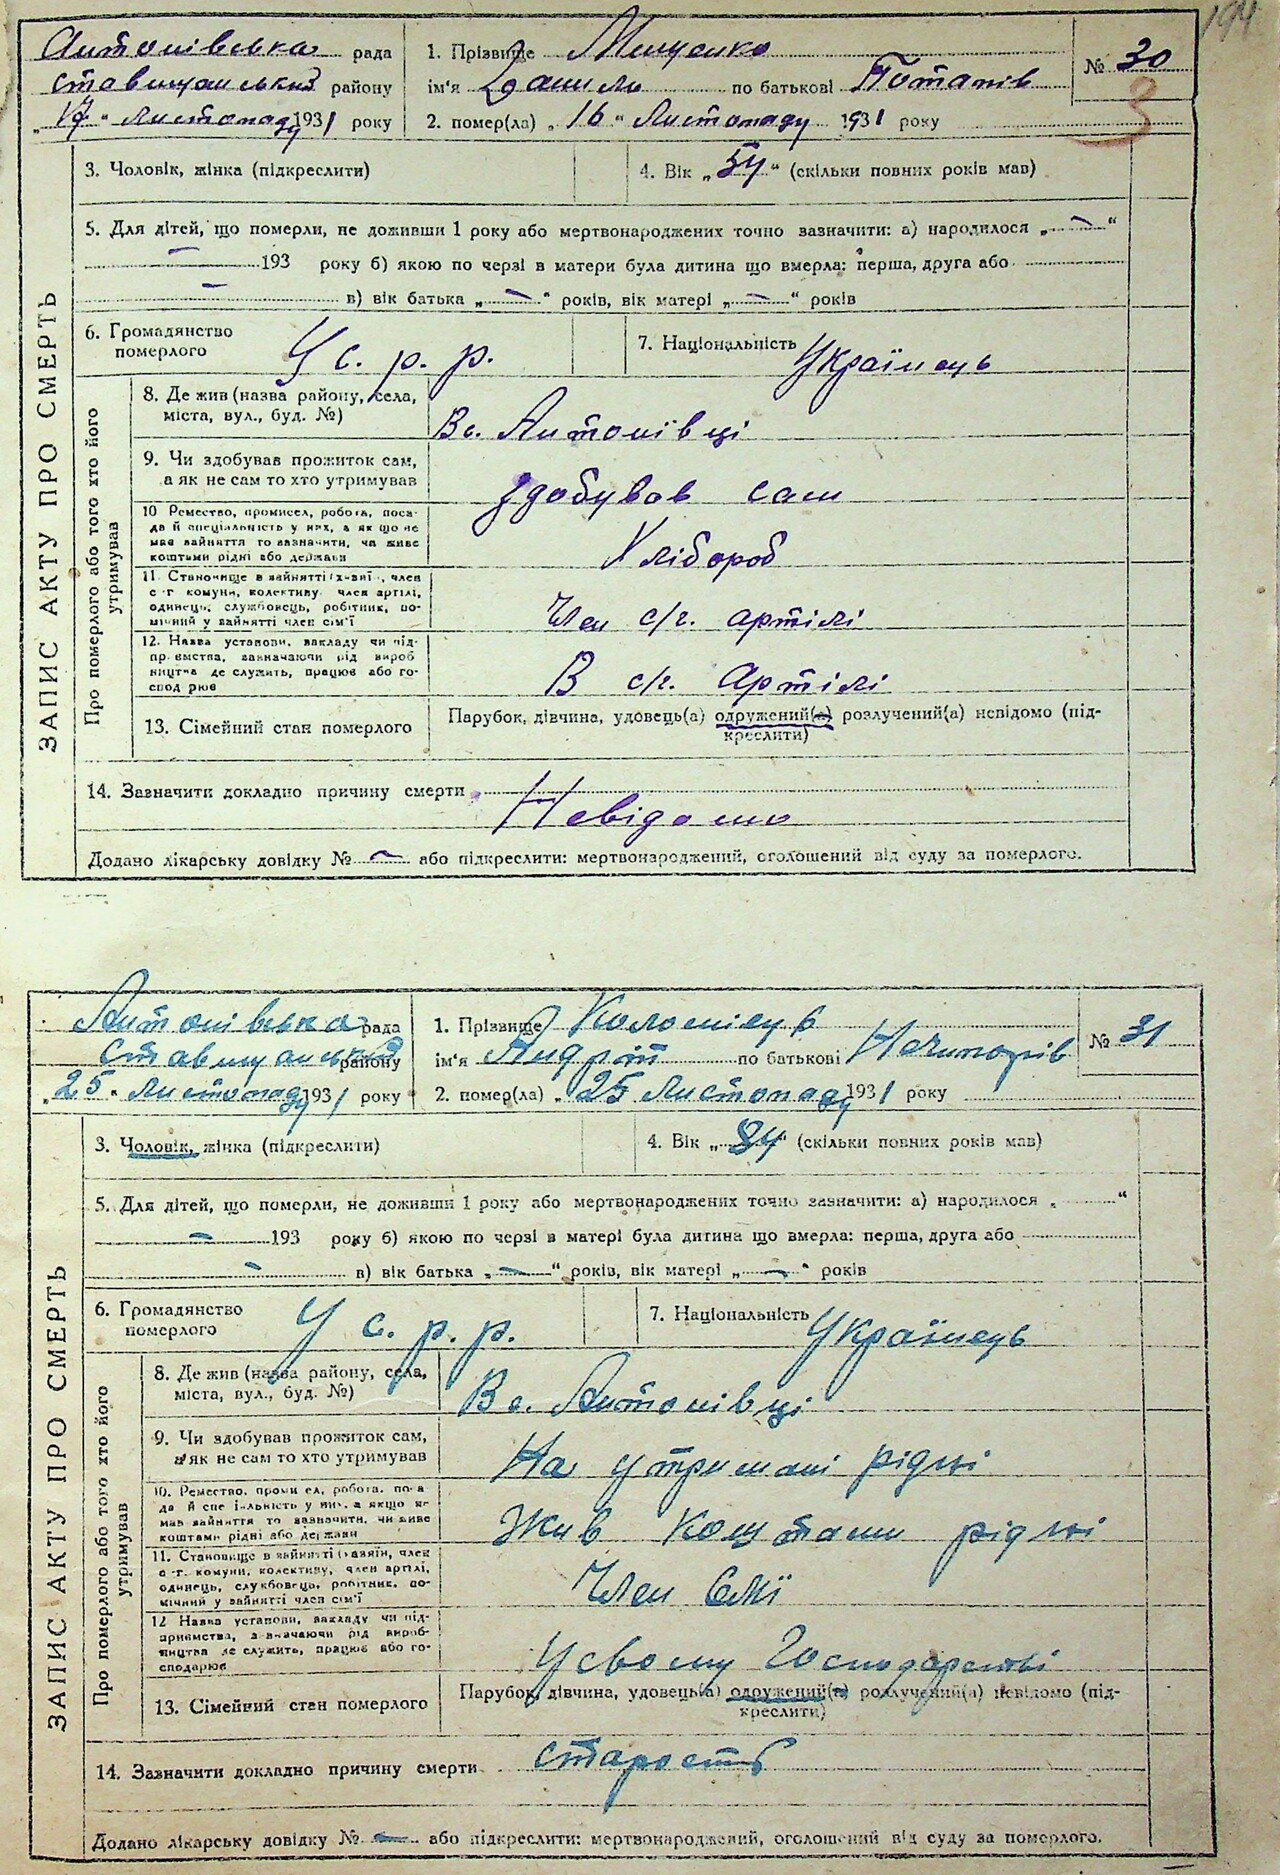 194
Антонівська рада
ставищанський району
„17" Листопаду 1931 року
1. Прізвище Мищенко
ім'я Данило по батькові Потапів
2. помер(ла) „16" Листопаду 1931 року
№ 30
3
ЗАПИС АКТУ ПРО СМЕРТЬ
3. Чоловік, жінка (підкреслити)
4. Вік „54" (скільки повних років мав)
5. Для дітей, що померли, не доживши 1 року або мертвонароджених точно зазначити: а) народилося „—"
— 193 року б) якою по черзі в матери була дитина що вмерла: перша, друга або
— в) вік батька „—" років, вік матері „—" років
6. Громадянство
померлого
У с. р. р.
7. Національність Українець
Про померлого або того хто його
утримував
8. Де жив (назва району, села,
міста, вул., буд. №)
В с. Антонівці
9. Чи здобував прожиток сам,
а як не сам то хто утримував
здобував сам
10 Ремество, промисел, робота, поса-
да й спеціальність у них, а як що не
мав зайняття то зазначити, чи живе
коштами рідні або держави
Хлібороб
11. Становище в зайнятті член
с-г комуни, колективу член артілі,
одинець, службовець, робітник, по-
мічний у зайнятті член сім'ї
Член с/г. артілі
12. Назва установи, закладу чи під-
пр-вмства, зазначаючи рід вироб
ництва де служить, працює або го-
спод рює
В с/г. Артілі
13. Сімейний стан померлого
Парубок, дівчина, удовець(а) одружений(а) розлучений(а) невідомо (під-
креслити)
14. Зазначити докладно причину смерти
Невідомо
Додано лікарську довідку № — або підкреслити: мертвонароджений, оголошений від суду за померлого.
Антонівська рада
Ставищанський району
„25" Листопаду 1931 року
1. Прізвище Коломієць
ім'я Андрій по батькові Ничипорів
2. помер(ла) „25 Листопаду 1931 року
№ 31
ЗАПИС АКТУ ПРО СМЕРТЬ
3. Чоловік, жінка (підкреслити)
4. Вік „84" (скільки повних років мав)
5. Для дітей, що померли, не доживши 1 року або мертвонароджених точно зазначити: а) народилося „ "
— 193 року б) якою по черзі в матері була дитина що вмерла: перша, друга або
— в) вік батька „—" років, вік матері „—" років
6. Громадянство
померлого
У с. р. р.
7. Національність Українець
Про померлого або того хто його
утримував
8. Де жив (назва району, села,
міста, вул., буд. №)
В с. Антонівці
9. Чи здобував прожиток сам,
а як не сам то хто утримував
На утримані рідні
10. Ремество, проми ел, робота, поса
да й спе іальність у них, а якщо не
мав зайняття то зазначити, чи живе
коштами рідні або держави
Жив коштами рідні
11. Становище в зайнятті (хазяїн, член
с-г. комуни, колективу, член артілі,
одинець, службовець, робітник, по-
мічний у зайнятті член сім'ї
Член Сімї
12 Назва установи, закладу чи під-
приємства, зазначаючи рід вироб-
ництва де служить, працює або го-
сподарює
У свому Господарстві
13. Сімейний стан померлого
Парубок, дівчина, удовець(а) одружений(а) розлучений(а) невідомо (під-
креслити)
14. Зазначити докладно причину смерти старость
Додано лікарську довідку № — або підкреслити: мертвонароджений, оголошений від суду за померлого.